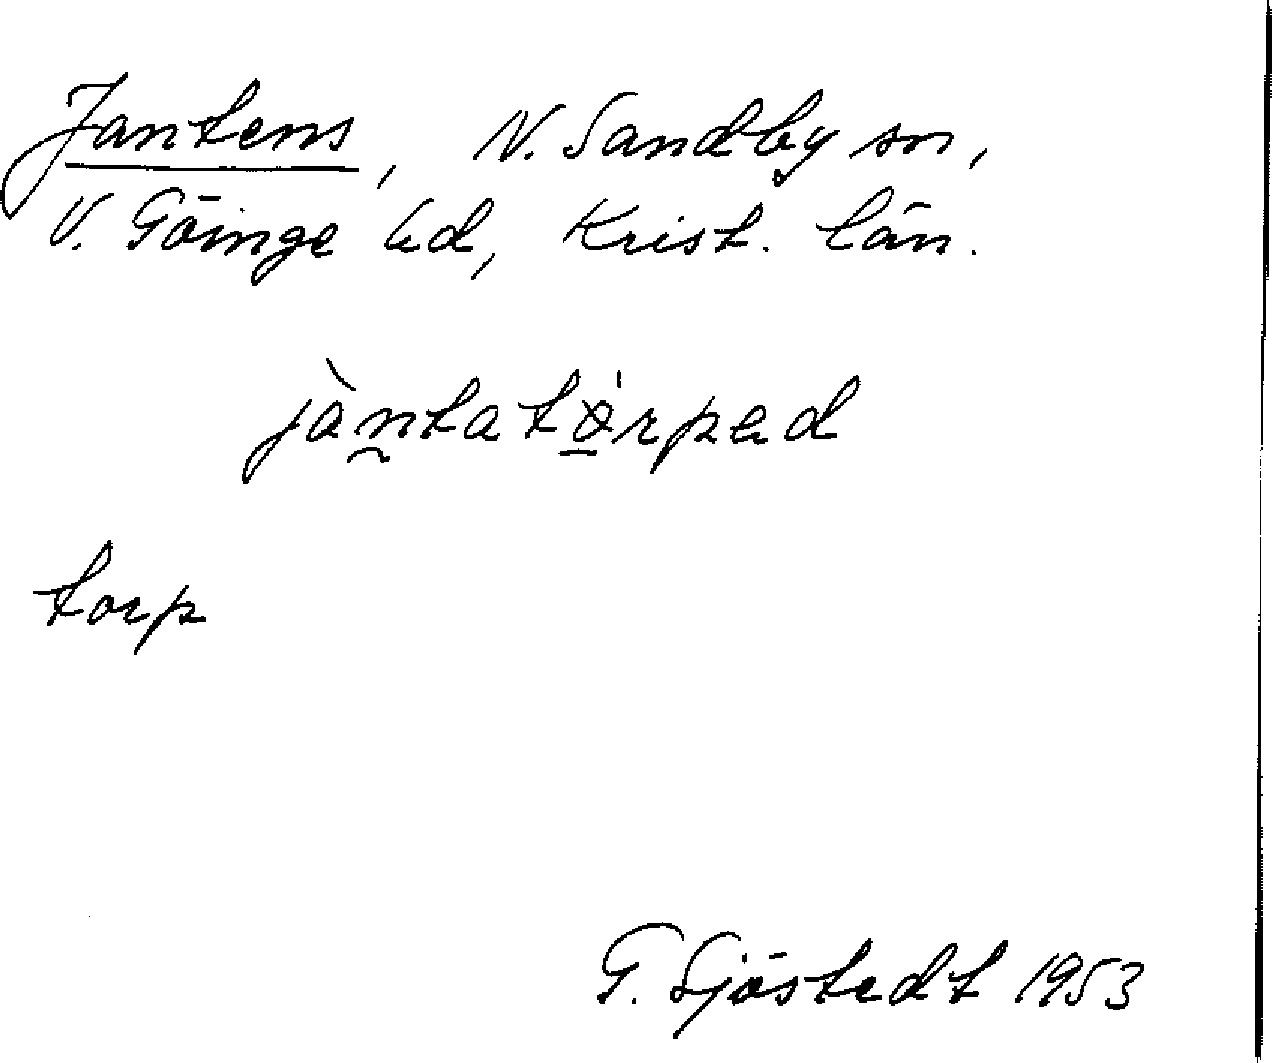 Jantens, N. Sandby sn,
V. Göinge hd, Krist. län.
jàntatȯrped
torp
G. Sjöstedt 1953